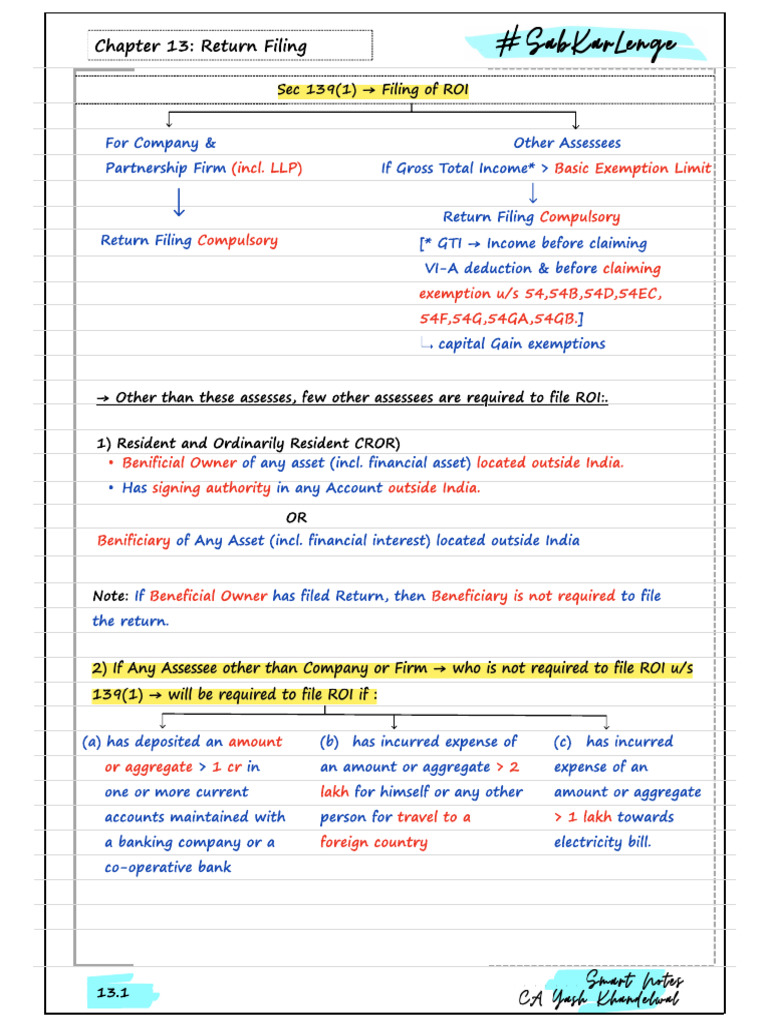 Chapter 13: Return Filing
#SabKarLenge
Sec 139(1) → Filing of ROI
For Company &
Partnership Firm (incl. LLP)
Return Filing Compulsory
Other Assessees
If Gross Total Income* > Basic Exemption Limit
Return Filing Compulsory
[* GTI → Income before claiming
VI-A deduction & before claiming
exemption u/s 54,54B,54D,54EC,
54F,54G,54GA,54GB.]
capital Gain exemptions
→ Other than these assesses, few other assessees are required to file ROI:.
1) Resident and Ordinarily Resident CROR)
• Benificial Owner of any asset (incl. financial asset) located outside India.
• Has signing authority in any Account outside India.
OR
Benificiary of Any Asset (incl. financial interest) located outside India
Note: If Beneficial Owner has filed Return, then Beneficiary is not required to file
the return.
2) If Any Assessee other than Company or Firm → who is not required to file ROI u/s
139(1) → will be required to file ROI if :
(a) has deposited an amount
or aggregate > 1 cr in
one or more current
accounts maintained with
a banking company or a
co-operative bank
(b) has incurred expense of
an amount or aggregate > 2
lakh for himself or any other
person for travel to a
foreign country
(c) has incurred
expense of an
amount or aggregate
> 1 lakh towards
electricity bill.
13.1
Smart Notes
CA Yash Khandelwal